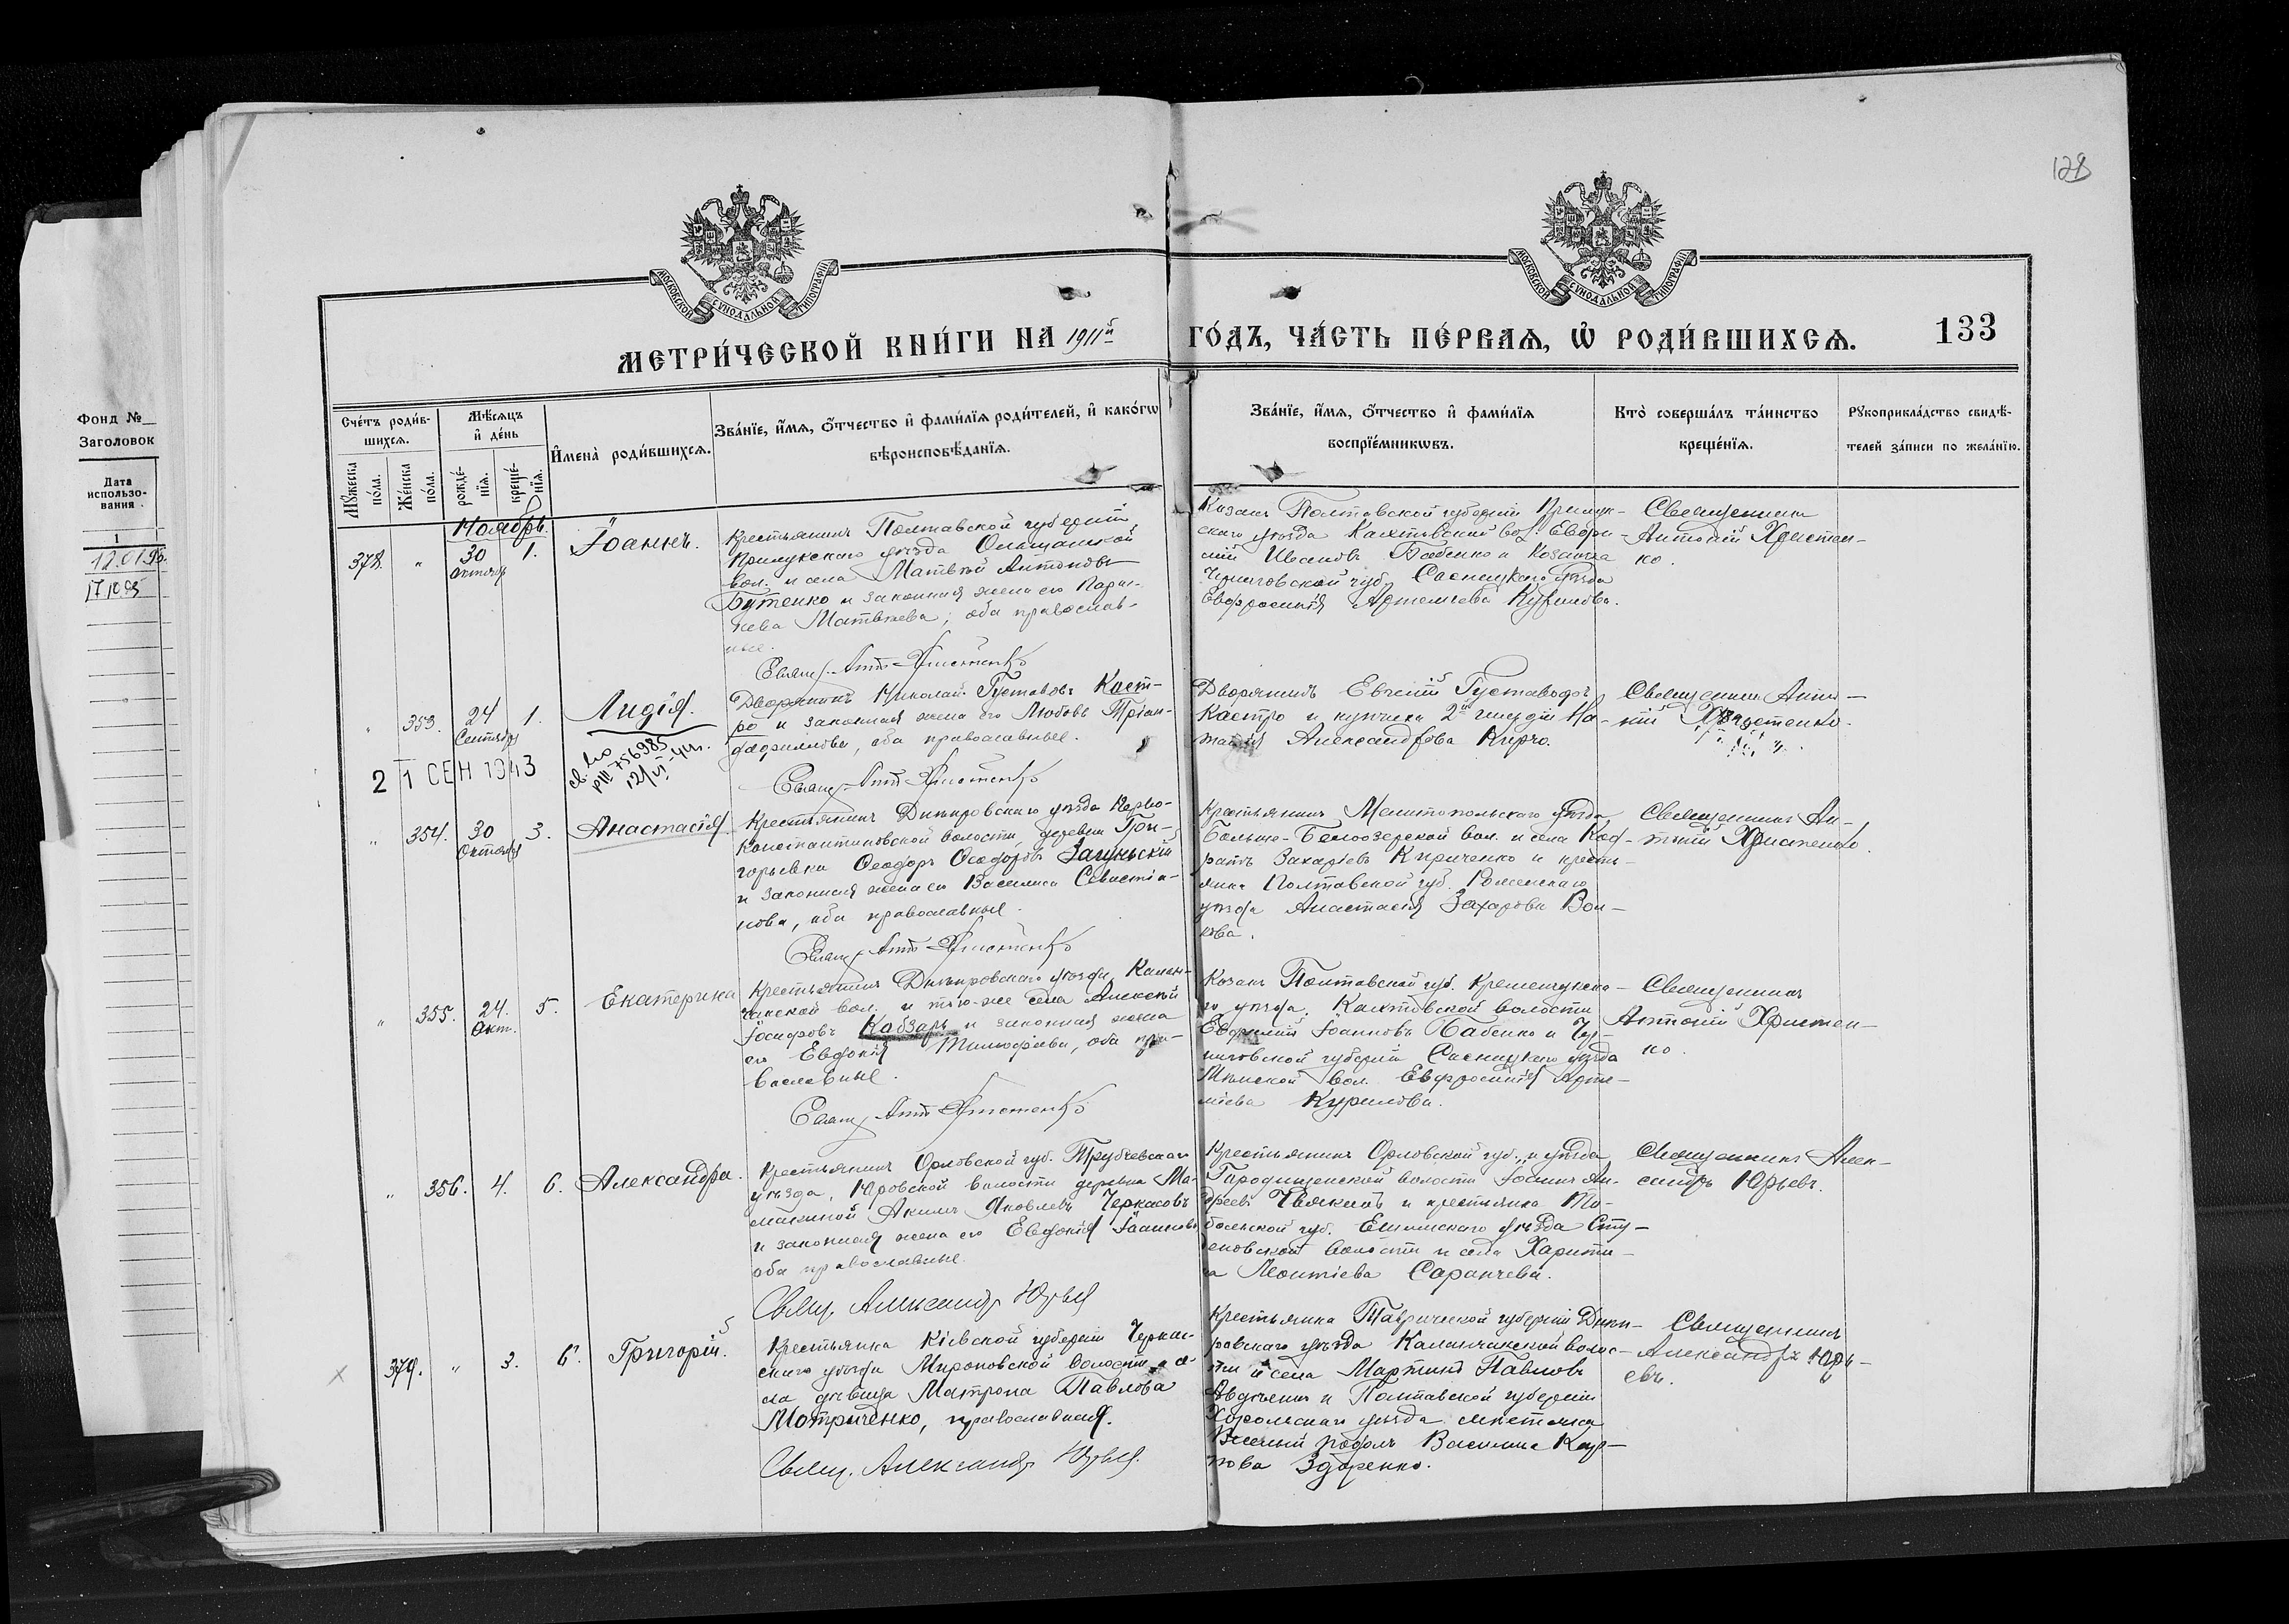 128
МОСКОВСКОЙ СУНОДАЛЬНОЙ ТИПОГРАФІИ
МОСКОВСКОЙ СУНОДАЛЬНОЙ ТИПОГРАФІИ
МЕТРИ́ЧЕСКОЙ КНИ́ГИ НА 1911й ГО́ДЪ, ЧА́СТЬ ПЕ́РВАѦ, Ѡ РОДИ́ВШИХСѦ. 133
Фонд №
Заголовок
Дата
использо-
вания
1
12.01.95.
17.10.95
Сче́тъ роди́в-
шихсѧ.
Мꙋжеска по́ла.
Же́нска по́ла.
Мѣ́сѧцъ
и҆ де́нь
рожде́-
нїѧ.
креще́-
нїѧ.
И҆мена̀ роди́вшихсѧ.
Зва́нїе, и҆́мѧ, ѻ҆́тчество и҆ фами́лїѧ роди́телей, и҆ како́гѡ
вѣроисповѣ́данїѧ.
Зва́нїе, и҆́мѧ, ѻ҆́тчество и҆ фами́лїѧ
воспрїе́мникѡвъ.
Кто̀ соверша́лъ та́инство
креще́нїѧ.
Рꙋкоприкла́дство свидѣ́-
телей за́писи по жела́нїю.
Ноябрь.
378. " 30 Октябр 1.
Іоаннъ.
Крестьянинъ Полтавской губерніи
Прилукскаго уѣзда Ольшанской
вол. и села Матвѣй Антоновъ
Бутенко и законная жена его
Матвѣева; оба православ-
ные.
Свящ. Ант. Христенко
Козакъ Полтавской губерніи Прилук-
скаго уѣзда вол.
Ивановъ Бабенко и Козачка
Черниговской губ. Сосницкаго уѣзда
Евфросинія Артемьева Курилова.
Священникъ
Антоній Христен-
ко.
" 353. 24 Сентября 1.
Лидія.
21 СЕН 1943
756985
Дворянинъ Николай Густавовъ Каст-
ро и законная жена его Любовь Тріан-
дафилова, оба православные.
Свящ. Ант. Христенко
Дворянинъ Евгеній Густавовъ
Кастро и купчиха 2й гильдіи На-
талія Александрова Кирчо.
Священникъ Анто-
ній Христенко.
" 354. 30 Октября 3.
Анастасія
Крестьянинъ Днѣпровскаго уѣзда
Константиновской волости, деревни Гри-
горьевки Ѳеодоръ Ѳеодоровъ Загуньскій
и законная жена его Василиса Севастіа-
нова, оба православные.
Свящ. Ант. Христенко
Крестьянинъ Мелитопольскаго уѣзда
Больше-Бѣлозерской вол. и села Код-
ратъ Захаріевъ Кириченко и кресть-
янка Полтавской губ. Роменскаго
уѣзда Анастасія Захарова Вол-
кова.
Священникъ Ан-
тоній Христенко.
" 355. 24. Окт. 5.
Екатерина
Крестьянинъ Днѣпровскаго уѣзда, Калан-
чакской вол. и того-же села Алексѣй
Іосифовъ Кобзарь и законная жена
его Евдокія Тимофеева, оба пра-
вославные.
Свящ. Ант. Христенко
Козакъ Полтавской губ. Кременчугска-
го уѣзда, волости
Іоанновъ Бабенко и Чер-
ниговской губерніи Сосницкаго уѣзда
Мѣнской вол. Евфросинія Арте-
міева Курилова.
Священникъ
Антоній Христен-
ко.
" 356. 4. 6.
Александра.
Крестьянинъ Орловской губ. Трубчевскаго
уѣзда, Юровской волости деревни Ма-
Акимъ Яковлевъ Черкасовъ
и законная жена его Евдокія Іоаннова
оба православные.
Свящ. Александръ Юрьевъ
Крестьянинъ Орловской губ. и уѣзда
Городищенской волости Іоаннъ Ан-
дреевъ и крестьянка То-
больской губ. Ешимскаго уѣзда
волости и села Харити-
на Леонтіева Саранчева.
Священникъ Алек-
сандръ Юрьевъ.
379. " 3. 6.
Григорій.
Крестьянка Кіевской губерніи Черкас-
скаго уѣзда Мироновской волости и се-
ла дѣвица Матрона Павлова
Мотриченко, православная.
Свящ. Александръ Юрьевъ.
Крестьянка Таврической губерніи Днѣп-
ровскаго уѣзда Каланчакской волос-
ти и села Мартинъ Павловъ
и Полтавской губерніи
Хорольскаго уѣзда мѣстечка
Веселый Подолъ Василиса Кар-
пова
Священникъ
Александръ Юрь-
евъ.